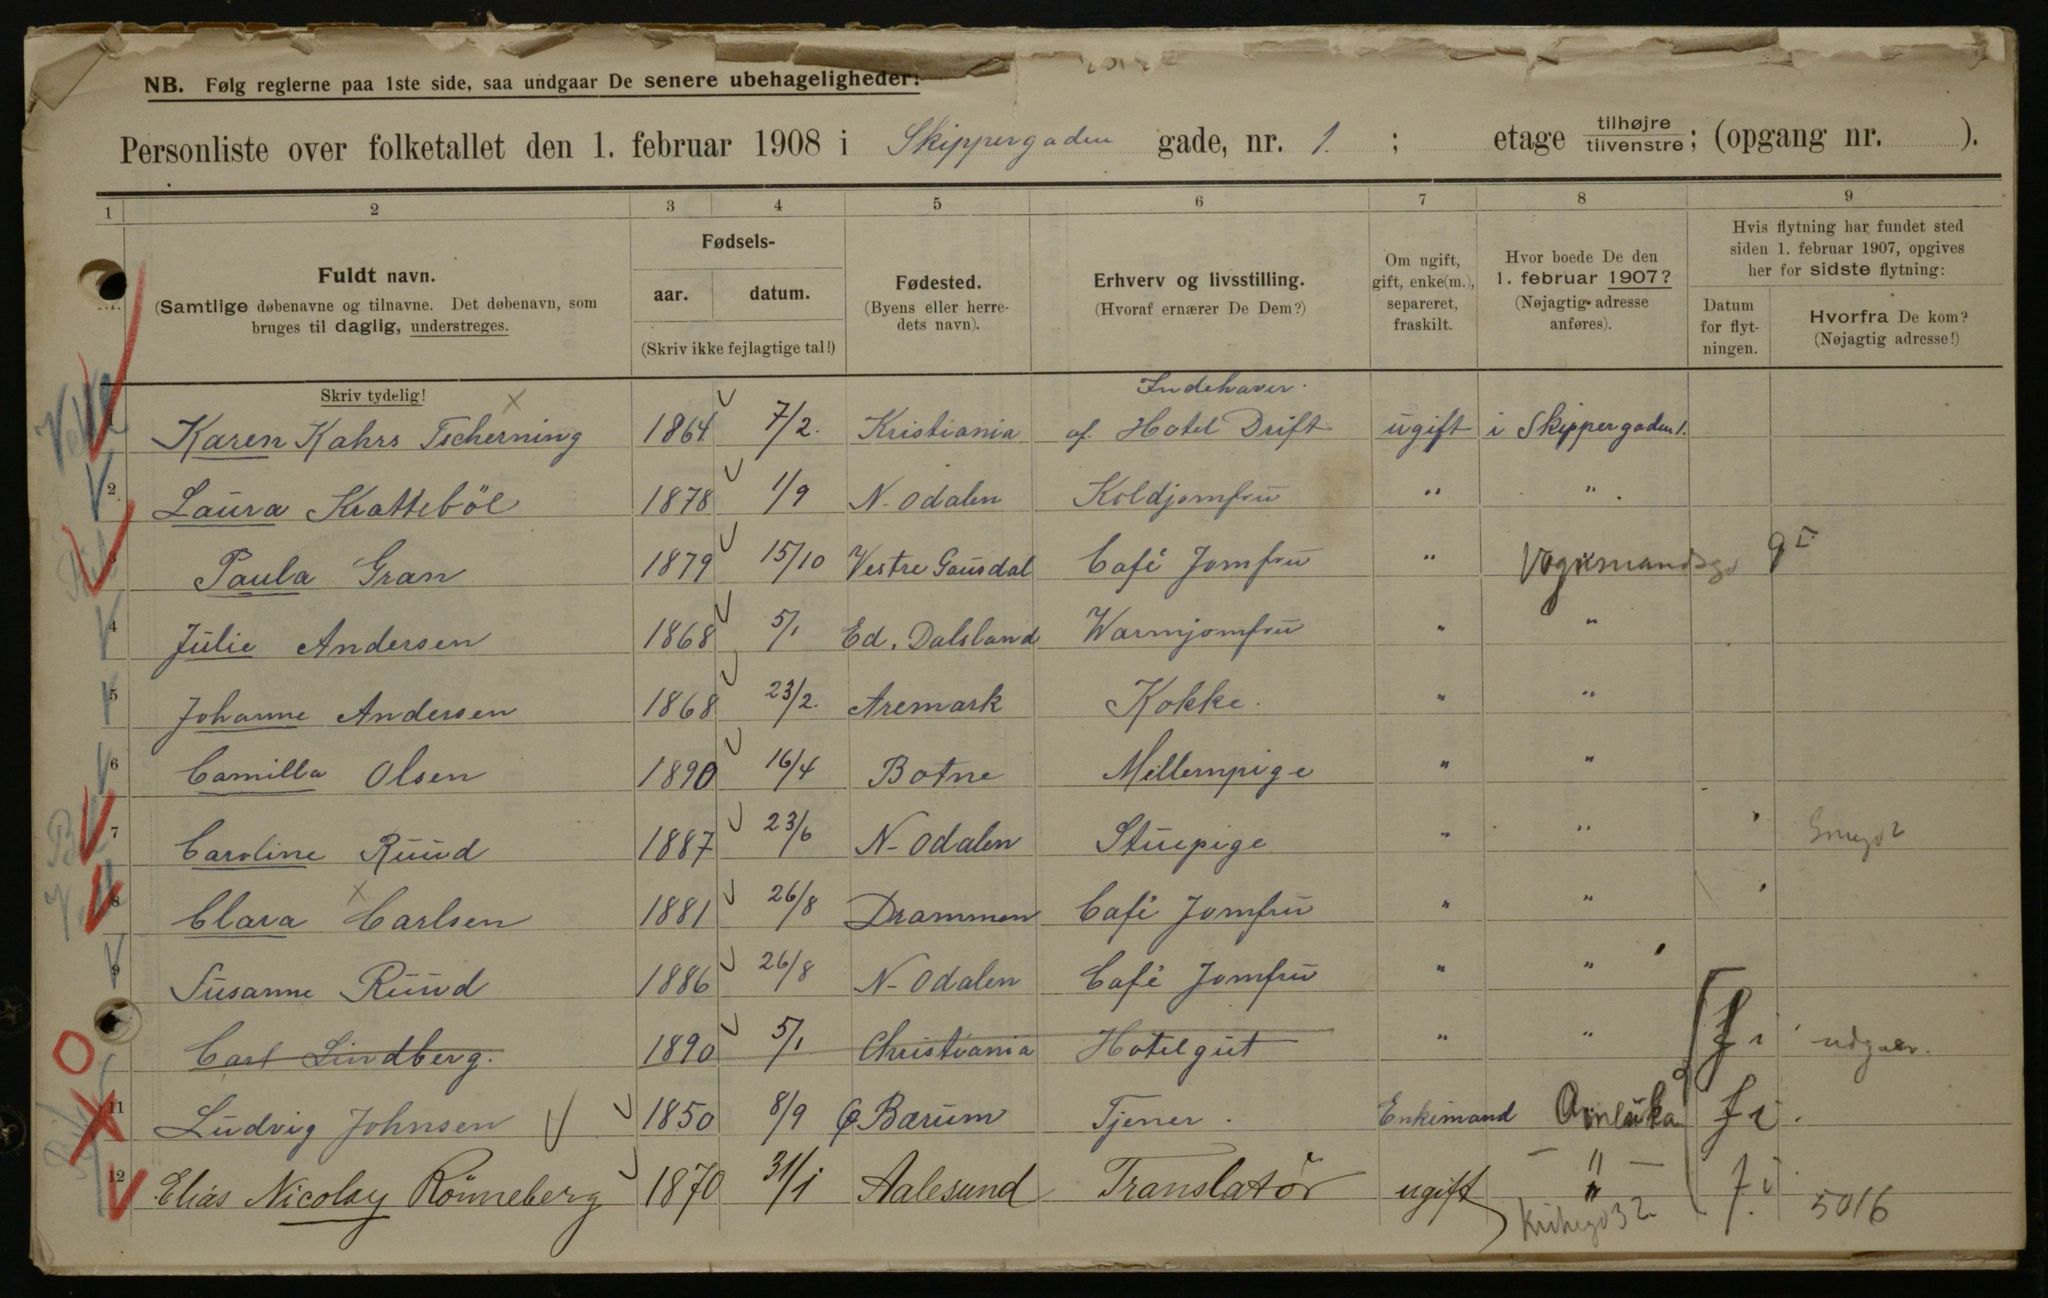 NB. Følg reglerne paa 1ste side, saa undgaar De senere ubehageligheder!
Personliste over folketallet den 1. februar 1908 i Skippergaden gade, nr. 1. ; etage tilhøjre tilvenstre; (opgang nr. ).
1 2 3 4 5 6 7 8 9
Fuldt navn.
(Samtlige døbenavne og tilnavne. Det døbenavn, som
bruges til daglig, understreges.
Skriv tydelig!
Fødsels-
aar. datum.
(Skriv ikke fejlagtige tal!)
Fødested.
(Byens eller herre-
dets navn).
Erhverv og livsstilling.
(Hvoraf ernærer De Dem?)
Om ugift,
gift, enke(m.),
separeret,
fraskilt.
Hvor boede De den
1. februar 1907?
(Nøjagtig adresse
anføres).
Hvis flytning har fundet sted
siden 1. februar 1907, opgives
her for sidste flytning:
Datum
for flyt-
ningen.
Hvorfra De kom?
(Nøjagtig adresse!)
Karen Kahrs Tscherning 1864 7/2. Kristiania Indehaver af. Hotel Drift ugift i Skippergaden 1.
2 Laura Krattebøl 1878 1/9 N-Odalen Koldjomfru " "
3 Paula Gran 1879 15/10 Vestre Gausdal Café Jomfru "
4 Julie Andersen 1868 5/1 Ed. Dalsland Warmjomfru " "
5 Johanne Andersen 1868 23/2. Aremark Kokke. " "
6 Camilla Olsen 1890 16/4 Botne Mellempige " "
7 Caroline Ruud 1887 23/6 N-Odalen Stuepige " "
8 Clara Carlsen 1881 26/8 Drammen Café Jomfru " "
9 Susanne Ruud 1886 26/8 N-Odalen Café Jomfru " "
Carl Lindberg. 1890 5/1 Christiania Hotelgut " " f i udgaar.
11 Ludvig Johnsen 1850 8/9 Bærum Tjener. Enkemand Amerika f i.
12 Elias Nicolay Rönneberg 1870 31/1 Aalesund Translatør ugift — " — f i
5016